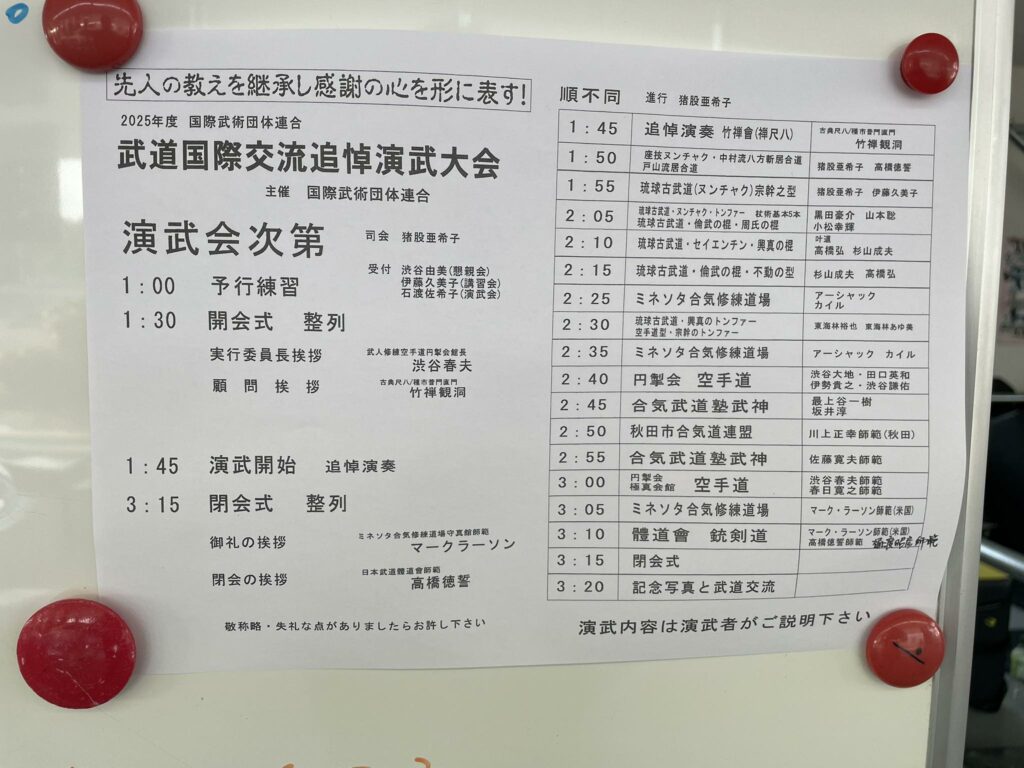 先人の教えを継承し感謝の心を形に表す!
2025年度 国際武術団体連合
武道国際交流追悼演武大会
主催 国際武術団体連合
演武会次第 司会 猪股亜希子
受付 渋谷由美(懇親会)
伊藤久美子(講習会)
石渡佐希子(演武会)
1:00 予行練習
1:30 開会式 整列
実行委員長挨拶 武人修練空手道円掣会館長
渋谷春夫
顧問挨拶 古典尺八/種市普門直門
竹禅観洞
1:45 演武開始 追悼演奏
3:15 閉会式 整列
御礼の挨拶 ミネソタ合気修練道場守真館師範
マークラーソン
閉会の挨拶 日本武道體道會師範
高橋徳誓
敬称略・失礼な点がありましたらお許し下さい
順不同 進行 猪股亜希子
1:45 追悼演奏 竹禅會(禅尺八) 古典尺八/種市普門直門
竹禅観洞
1:50 座技ヌンチャク・中村流八方斬居合道
戸山流居合道 猪股亜希子 高橋徳誓
1:55 琉球古武道(ヌンチャク)宗幹之型 猪股亜希子 伊藤久美子
2:05 琉球古武道・ヌンチャク・トンファー 杖術基本5本 黒田豪介 山本聡
琉球古武道・倫武の棍・周氏の棍 小松幸輝
2:10 琉球古武道・セイエンチン・興真の棍 叶道
高橋弘 杉山成夫
2:15 琉球古武道・倫武の棍・不動の型 杉山成夫 高橋弘
2:25 ミネソタ合気修練道場 アーシャック
カイル
2:30 琉球古武道・興真のトンファー
空手道型・宗幹のトンファー 東海林裕也 東海林あゆ美
2:35 ミネソタ合気修練道場 アーシャック カイル
2:40 円掣会 空手道 渋谷大地・田口英和
伊勢貴之・渋谷謙佑
2:45 合気武道塾武神 最上谷一樹
坂井淳
2:50 秋田市合気道連盟 川上正幸師範(秋田)
2:55 合気武道塾武神 佐藤寛夫師範
3:00 円掣会
極真会館 空手道 渋谷春夫師範
春日寛之師範
3:05 ミネソタ合気修練道場 マーク・ラーソン師範(米国)
3:10 體道會 銃剣道 マーク・ラーソン師範(米国)
高橋徳誓師範
3:15 閉会式
3:20 記念写真と武道交流
演武内容は演武者がご説明下さい